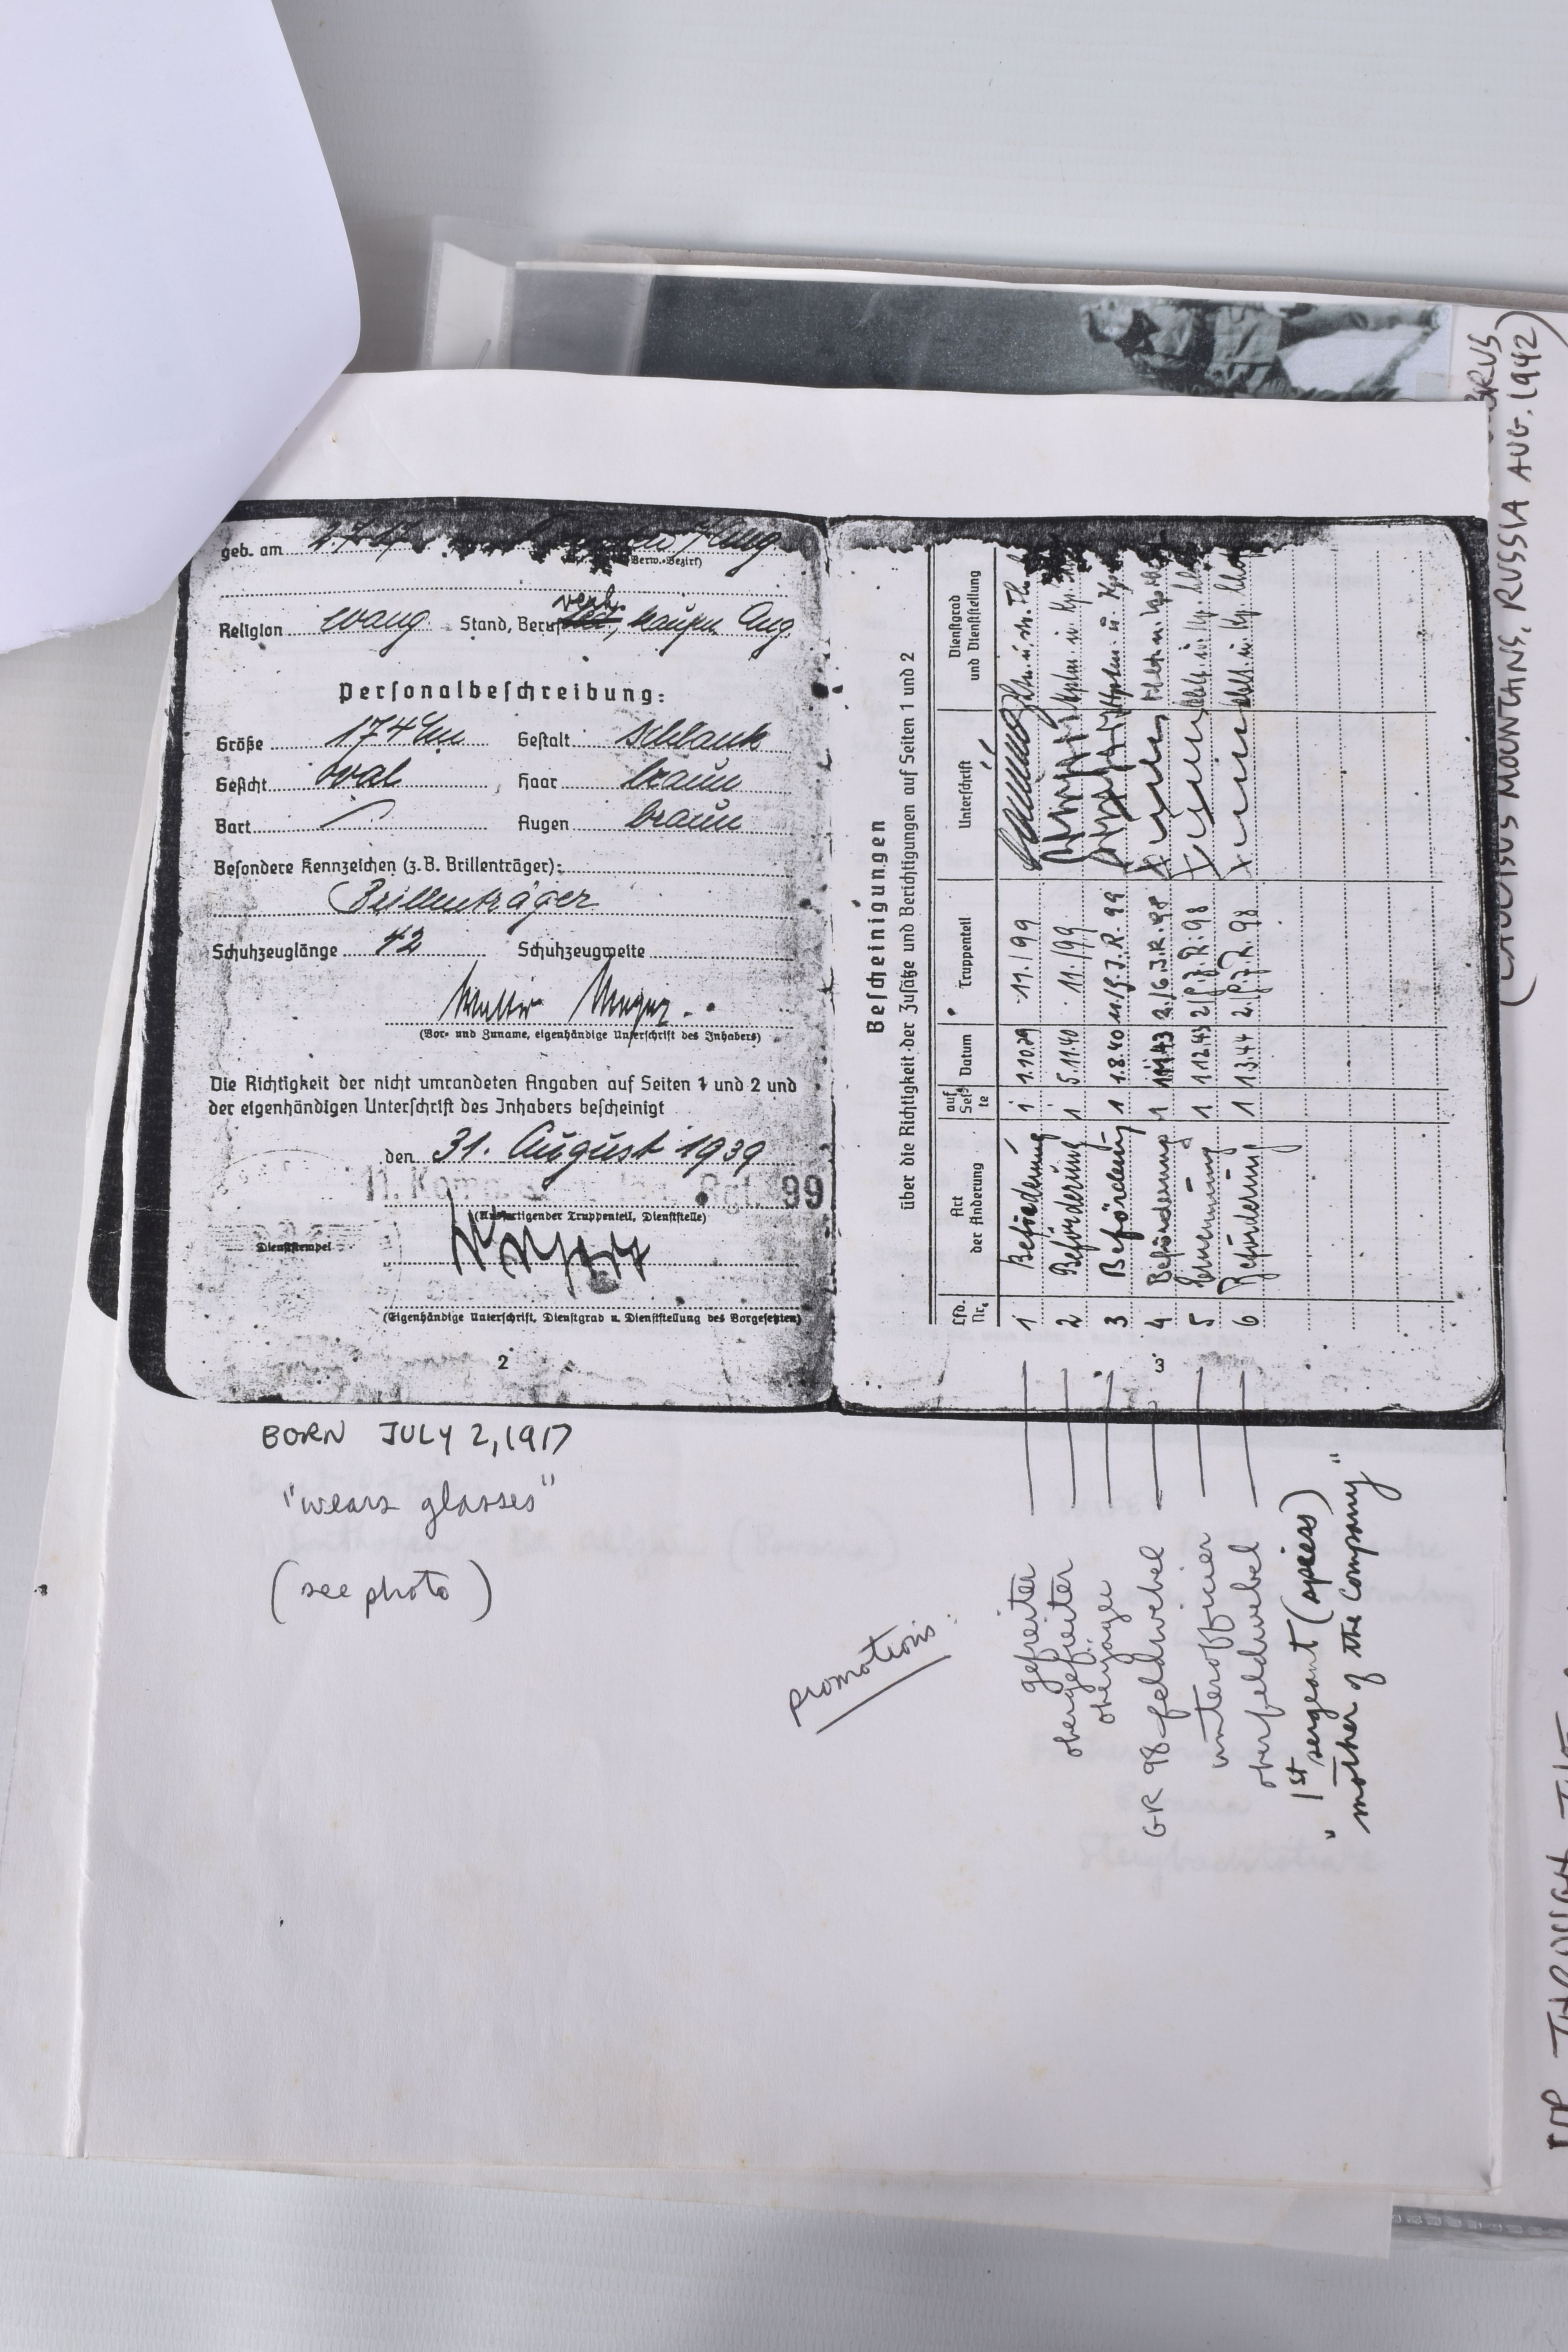 geb. am 2.7.17
Religion evang Stand, Beruf verh., kaufm. Ang.
Personalbeschreibung:
Größe 174 cm Gestalt schlank
Gesicht oval Haar braun
Bart Augen braun
Besondere Kennzeichen (z.B. Brillenträger):
Brillenträger
Schuhzeuglänge 42 Schuhzeugweite
(Vor- und Zuname, eigenhändige Unterschrift des Inhabers)
Die Richtigkeit der nicht umrandeten Angaben auf Seiten 1 und 2 und
der eigenhändigen Unterschrift des Inhabers bescheinigt
den 31. August 1939
11. Komp. Rgt. 99
(Ausfertigender Truppenteil, Dienststelle)
Dienststempel
(Eigenhändige Unterschrift, Dienstgrad u. Dienststellung des Vorgesetzten)
2
Bescheinigungen
über die Richtigkeit der Zusätze und Berichtigungen auf Seiten 1 und 2
Lfd. Nr. Art der Änderung auf Seite Datum Truppenteil Unterschrift Dienstgrad und Dienststellung
1 Beförderung 1 1.10.39 11./99
2 Beförderung 1 5.11.40 11./99
3 Beförderung 1 1.8.40 11./G.J.R. 99
4 Beförderung 1 2./G.J.R. 98
5 Ernennung 1 1.12.43 2./G.J.R. 98
6 Beförderung 1 1.3.44 2./G.J.R. 98
3
BORN JULY 2, 1917
"wears glasses"
(see photo)
promotions:
gefreiter
obergefreiter
oberjäger
GR 98 feldwebel
unterofficier
oberfeldwebel
"1st sergeant (spiess)
mother of the company"
BRUS
(CAUCUSUS MOUNTAINS, RUSSIA AUG. 1942)
THROUGH THE